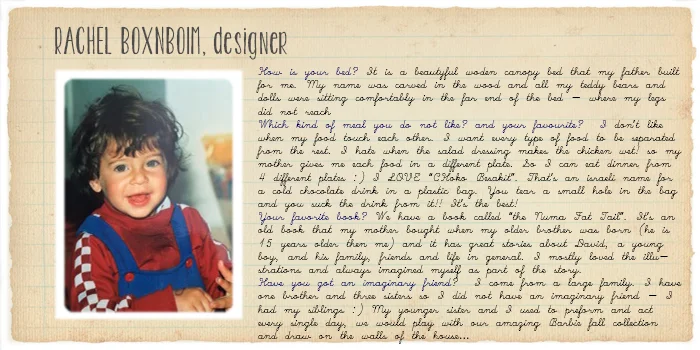 RACHEL BOXNBOIM, designer
How is your bed? It is a beautyful woden canopy bed that my father built
for me. My name was carved in the wood and all my teddy bears and
dolls were sitting comfortably in the far end of the bed – where my legs
did not reach
Which kind of meal you do not like? and your favourite? I don't like
when my food touch each other. I want every type of food to be separated
from the rest. I hate when the salad dressing makes the chicken wet! so my
mother gives me each food in a different plate. So I can eat dinner from
4 different plates :) I LOVE "CHoko Besakit". That's an israeli name for
a cold chocolate drink in a plastic bag. You tear a small hole in the bag
and you suck the drink from it!! It's the best!
Your favorite book? We have a book called "the Numa Fat Tail". It's an
old book that my mother bought when my older brother was born (he is
15 years older then me) and it has great stories about David, a young
boy, and his family, friends and life in general. I mostly loved the illu-
strations and always imagined myself as part of the story.
Have you got an imaginary friend? I come from a large family. I have
one brother and three sisters so I did not have an imaginary friend – I
had my siblings :) My younger sister and I used to preform and act
every single day, we would play with our amazing Barbie fall collection
and draw on the walls of the house...